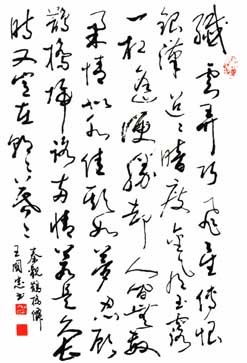 纖雲弄巧飛星傳恨
銀漢迢々暗度金風玉露
一相逢便勝却人間無數
柔情似水佳期如夢忍顧
鵲橋歸路兩情若是久長
時又豈在朝々暮々
秦觀鵲橋仙
王國忠書